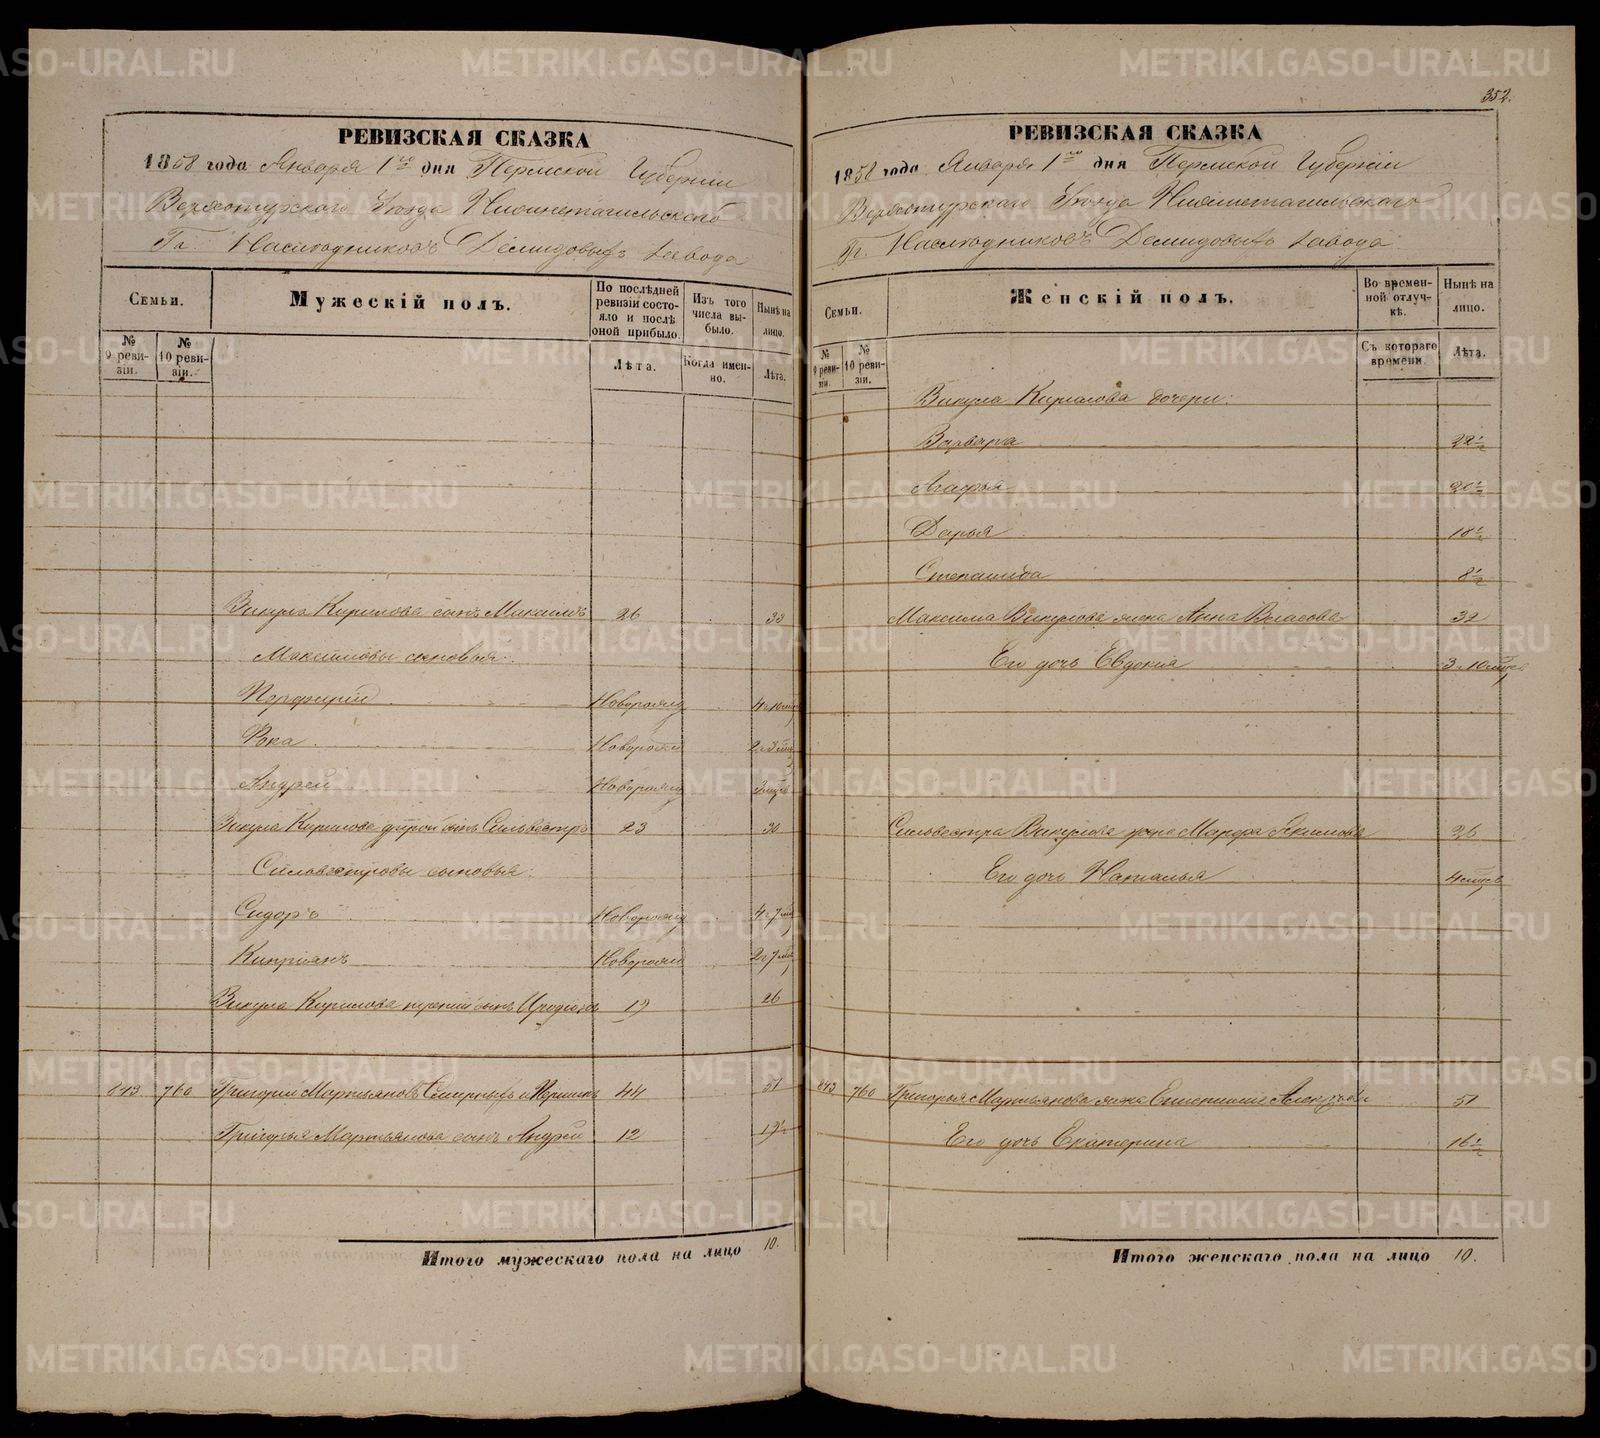 352.
РЕВИЗСКАЯ СКАЗКА
1858 года Января 1го дня Пермской Губернии
Верхотурского Уезда Нижнетагильского
Гг. Наследниковъ Демидовыхъ завода
Семьи.
Мужескій полъ.
По послѣдней ревизіи состояло и послѣ оной прибыло.
Изъ того числа выбыло.
Нынѣ на лицо.
№ 9 ревизіи.
№ 10 ревизіи.
Лѣта.
Когда именно.
Лѣта.
Викула Кирилова сынъ Максимъ 26 33
Максимовы сыновья:
Порфирий Новорожд
Фока Новорожд
Андрей Новорожд
Викула Кирилова другой сынъ Сильвестръ 23 30
Сильвестровы сыновья:
Сидоръ Новорожд
Киприянъ Новорожд
Викула Кирилова третий сынъ Иродионъ 19 26
843 760 Григорий Мартьяновъ Смирныхъ 44 51
Григорья Мартьянова сынъ Андрей 12 19½
Итого мужескаго пола на лицо 10.
РЕВИЗСКАЯ СКАЗКА
1858 года Января 1го дня Пермской Губернии
Верхотурского Уезда Нижнетагильского
Гг. Наследниковъ Демидовыхъ завода
Семьи.
Женскій полъ.
Во временной отлучкѣ.
Нынѣ на лицо.
№ 9 ревизіи.
№ 10 ревизіи.
Съ котораго времени.
Лѣта.
Викула Кирилова дочери:
Варвара 22½
Агафья 20½
Дарья 18½
Степанида 8½
Максима Викулова жена Анна Власова 32
Его дочь Евдокия
Сильвестра Викулова жена Марфа Якимова 26
Его дочь Наталья
843 760 Григорья Мартьянова жена 51
Его дочь Екатерина 16½
Итого женскаго пола на лицо 10.
METRIKI.GASO-URAL.RU